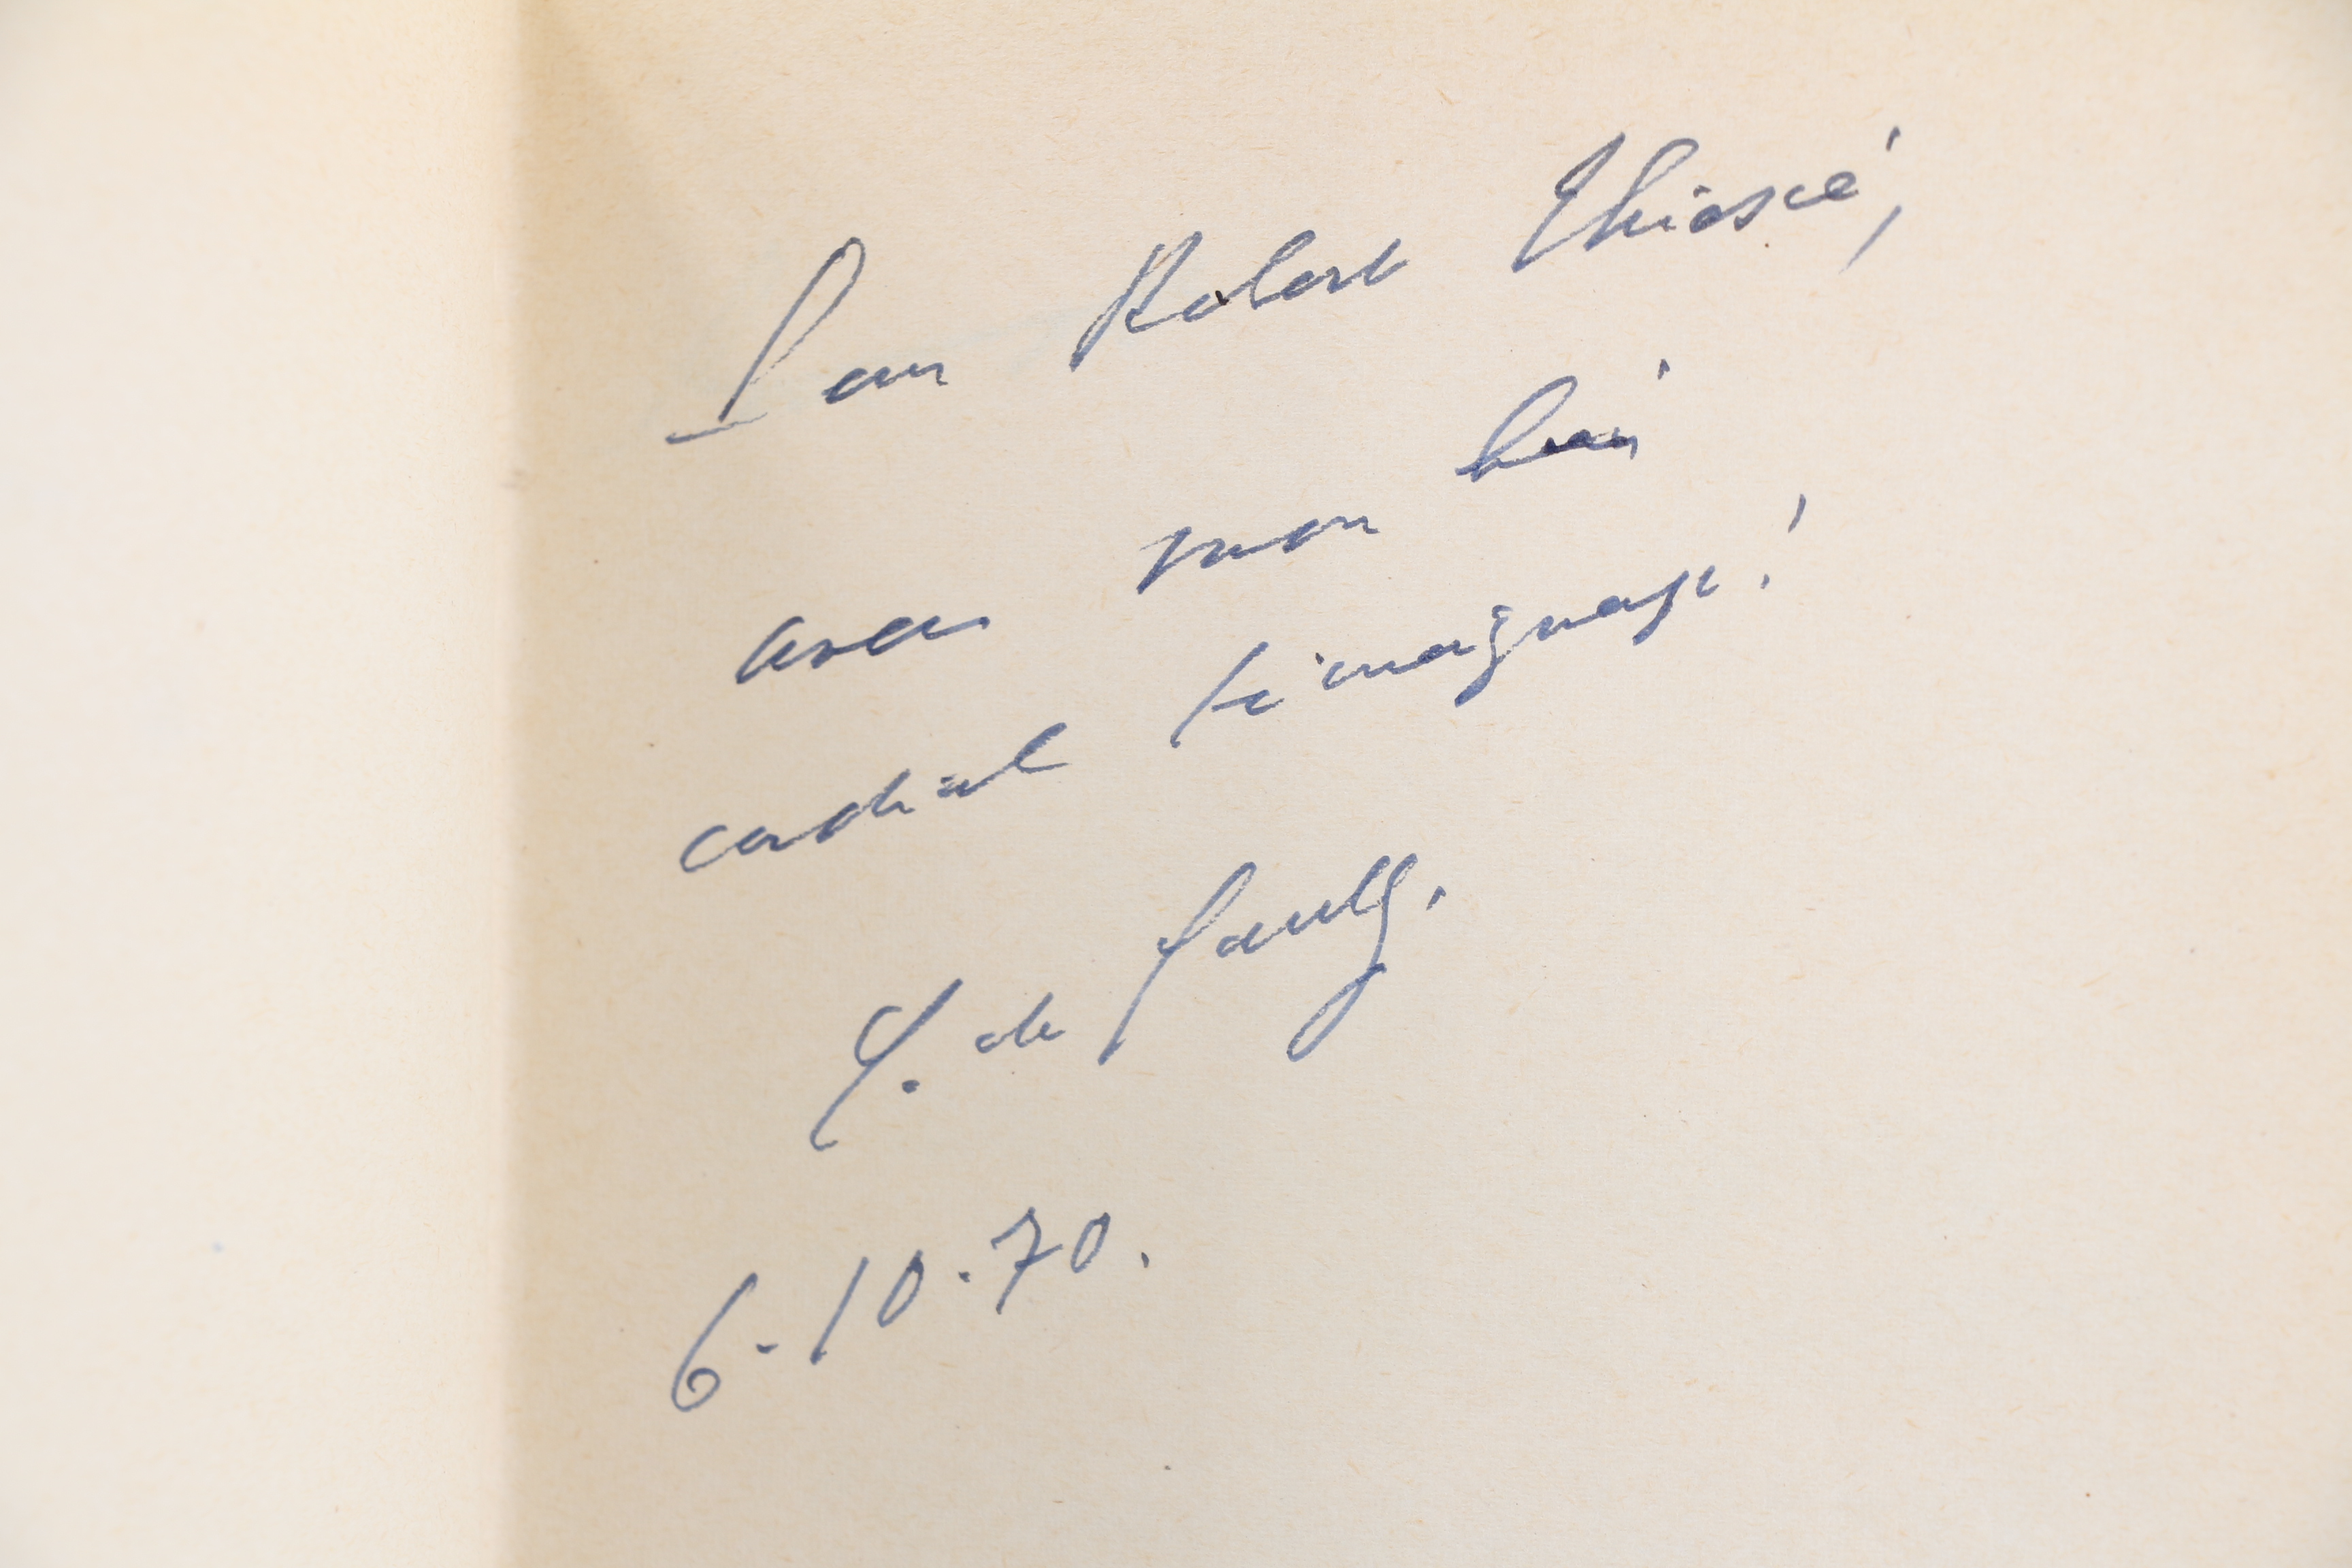 Pour Robert Thiascé,
avec mon très
cordial témoignage !
C. de Gaulle.
6-10-70.